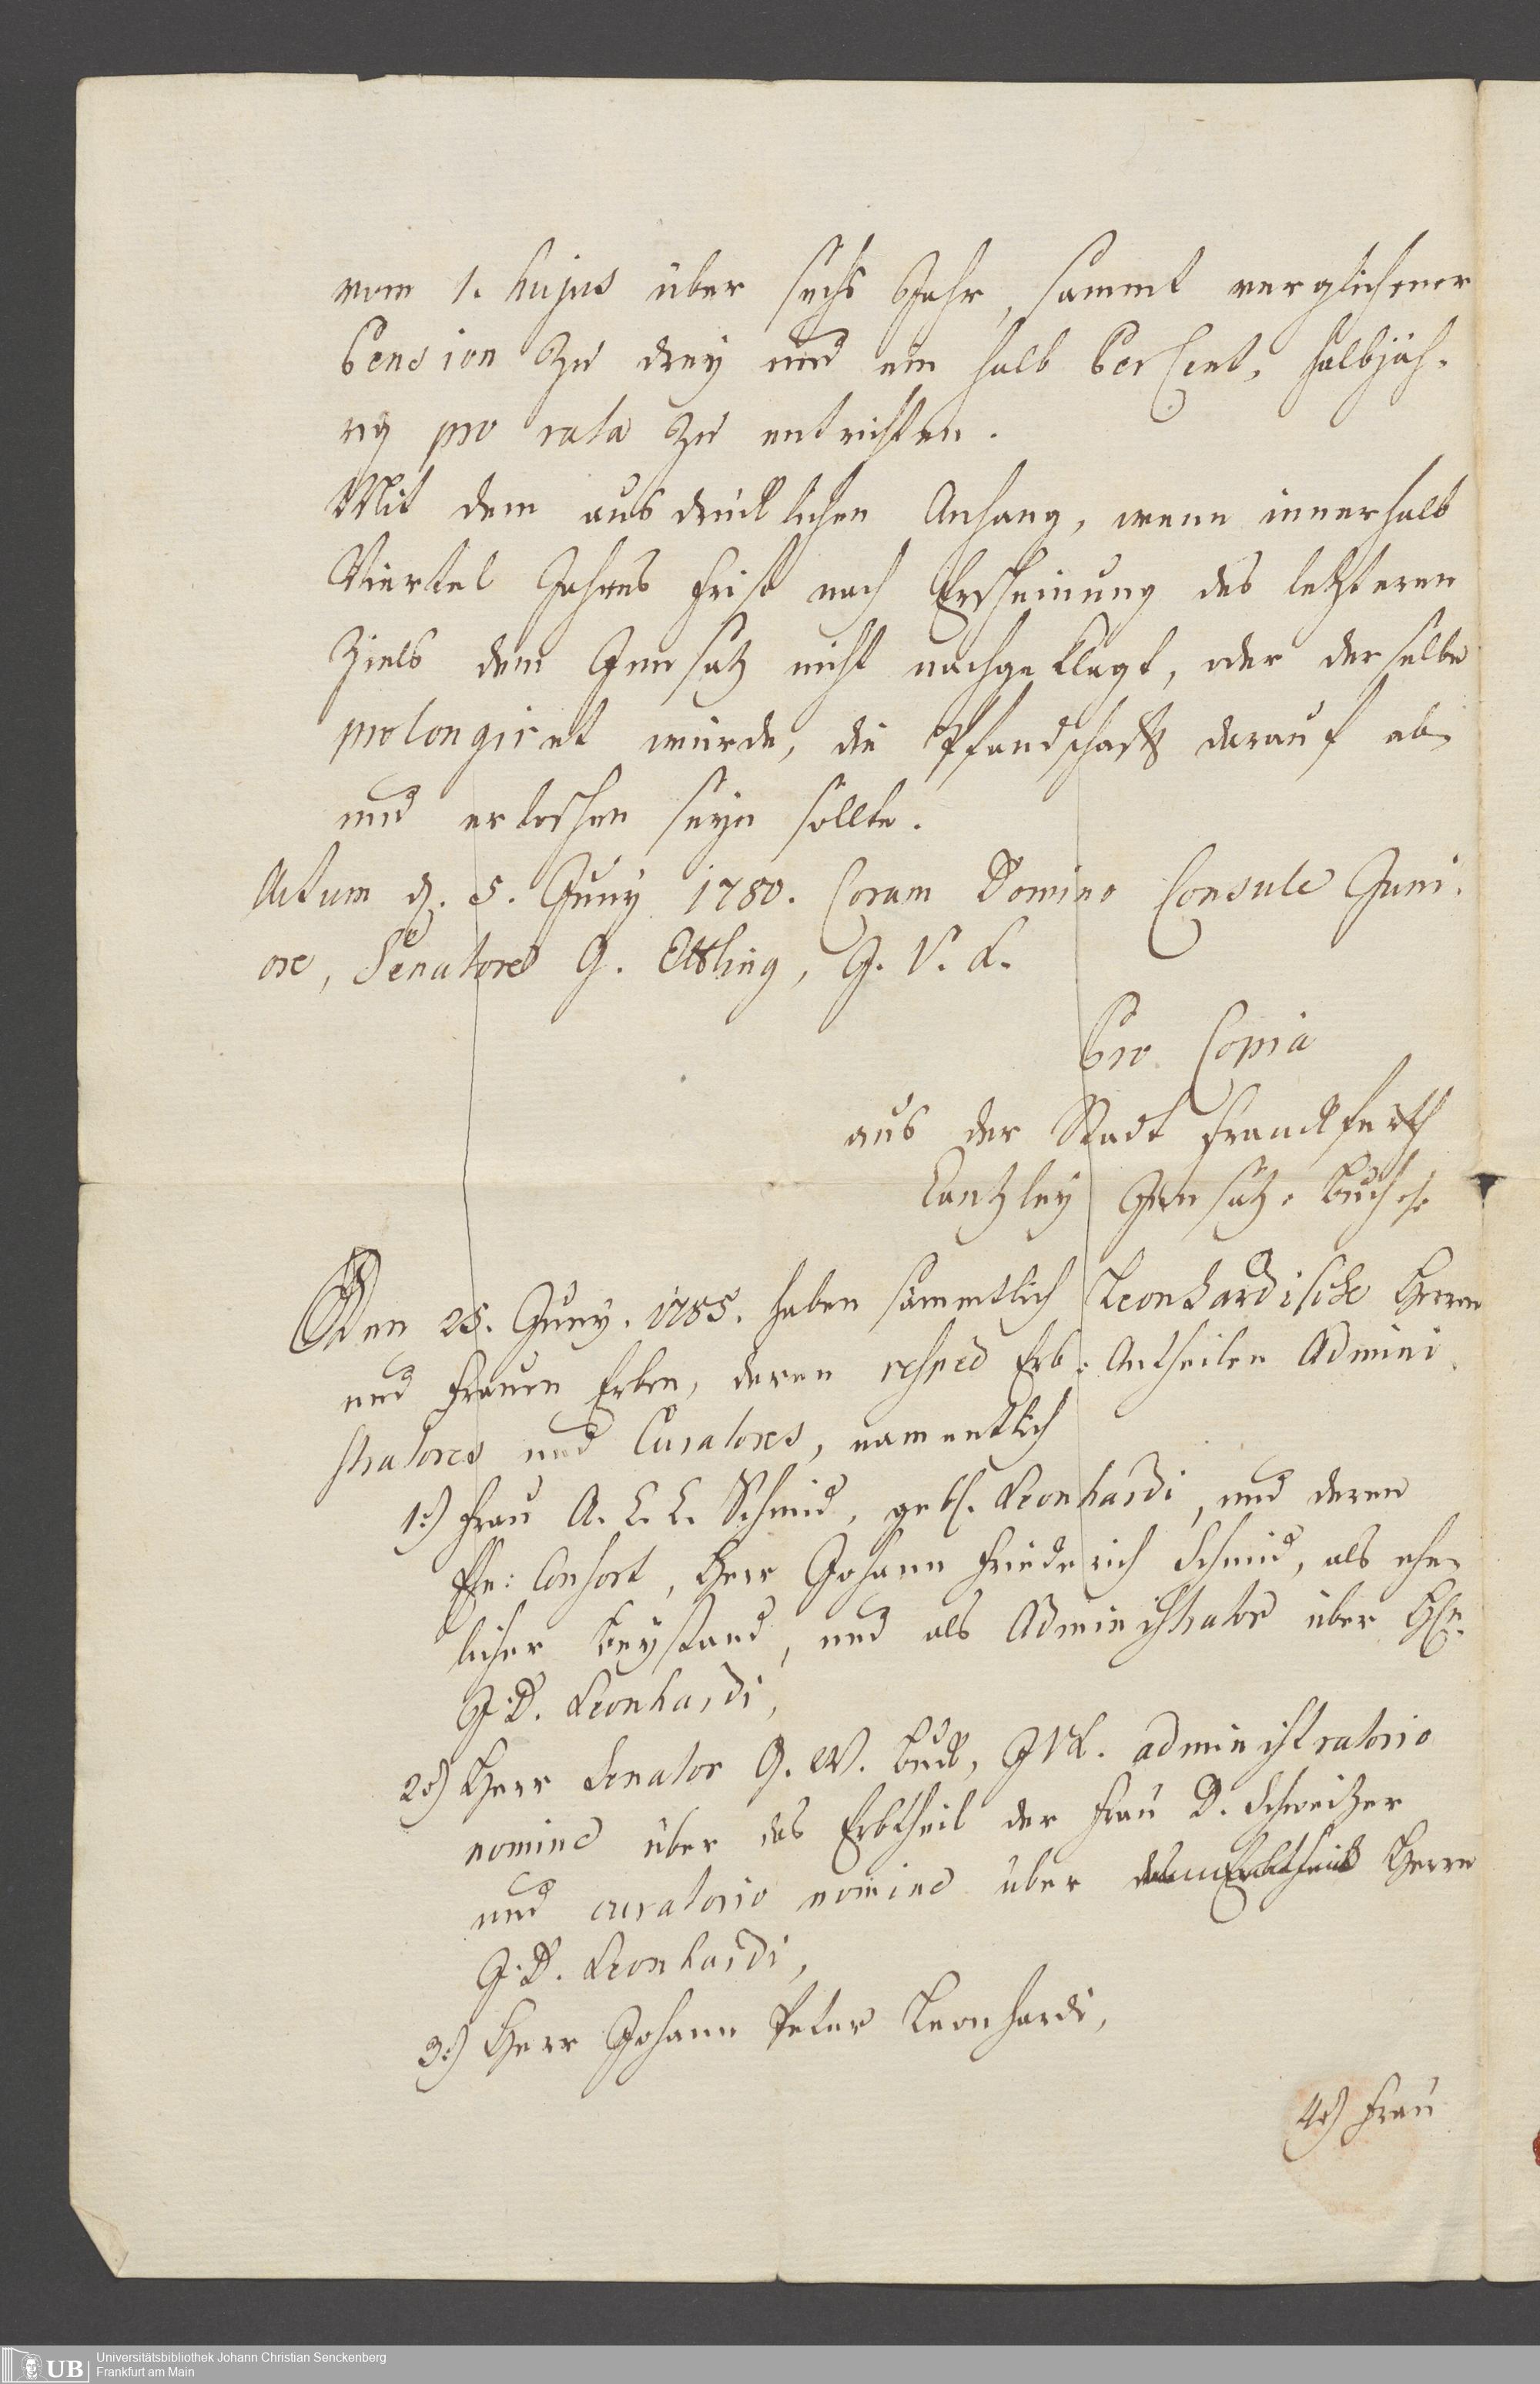 vom 1. hujus über sechs Jahr, sammt verglichener
Pension zu drey und ein halb Per Cent, halbjäh-
rig pro rata zu entrichten.
Mit dem ausdrücklichen Anhang, wenn innerhalb
Viertel Jahres Frist nach Erscheinung des letzteren
Ziels dem Innsatz nicht nachgeklagt, oder derselbe
prolongiret würde, die Pfandschafft darauf ab
und erloschen seyn sollte.
Actum d. 5. Juny 1780. Coram Domino Consule Juni-
ore, Senatore G. Ettling, J. V. L.
Pro Copia
aus der Stadt Franckfurth
Cantzley Innsatz-Buch.
Den 25. Juny. 1785. haben sämmtlich Leonhardische Herrn
und Frauen Erben, deren resped Erb-Antheilen Admini-
stratores und Curatores, namentlich
1.) Frau A. E. E. Schmid, geb. Leonhardi, und deren
Ehe: Consort, Herr Johann Friederich Schmid, als ehe-
licher Beystand, und als Administrator über Hn.
J: D. Leonhardi,
2.) Herr Senator G. W. Buck, JVL. administratorio
nomine über das Erbtheil der Frau D. Schweitzer
und curatorio nomine über Herrn
J: D. Leonhardi,
3.) Herr Johann Peter Leonhardi,
4.) Frau
UB
Universitätsbibliothek Johann Christian Senckenberg
Frankfurt am Main